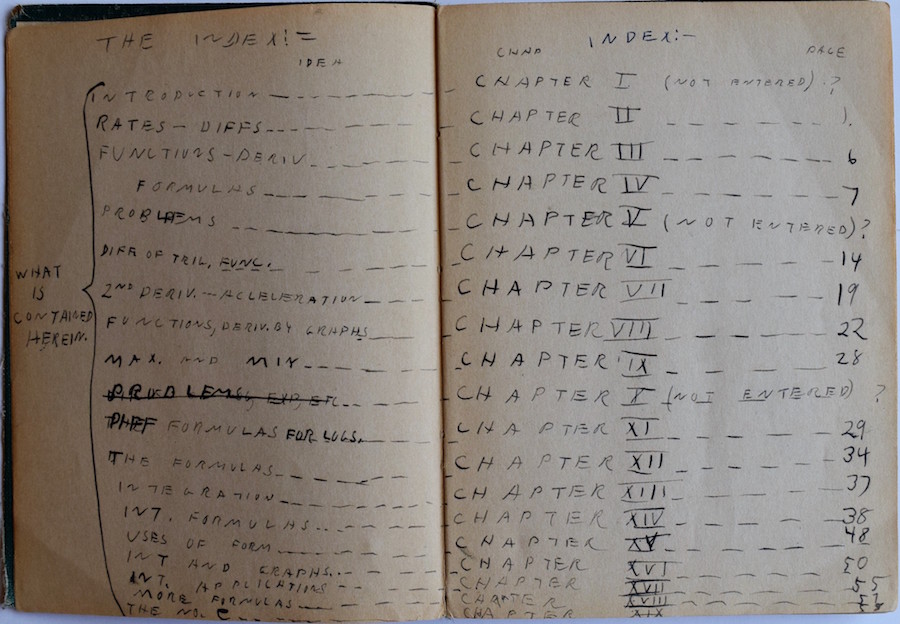 THE INDEX:=
IDEA
INTRODUCTION
RATES - DIFFS
FUNCTIONS - DERIV
FORMULAS
PROBLEMS
DIFF OF TRIG. FUNC.
2ND DERIV. - ACCLERATION
FUNCTIONS, DERIV. BY GRAPHS
MAX. AND MIN
PROBLEMS
FORMULAS FOR LOGS.
THE FORMULAS
INTEGRATION
INT. FORMULAS
USES OF FORM
INT AND GRAPHS
INT. APPLICATIONS
MORE FORMULAS
THE NO. e
WHAT
IS
CONTAINED
HEREIN.
INDEX:-
CHAP PAGE
CHAPTER I (NOT ENTERED).?
CHAPTER II 1.
CHAPTER III 6
CHAPTER IV 7
CHAPTER V (NOT ENTERED)?
CHAPTER VI 14
CHAPTER VII 19
CHAPTER VIII 22
CHAPTER IX 28
CHAPTER X (NOT ENTERED) ?
CHAPTER XI 29
CHAPTER XII 34
CHAPTER XIII 37
CHAPTER XIV 38
CHAPTER XV 48
CHAPTER XVI 50
CHAPTER XVII 55
CHAPTER XVIII
CHAPTER XIX